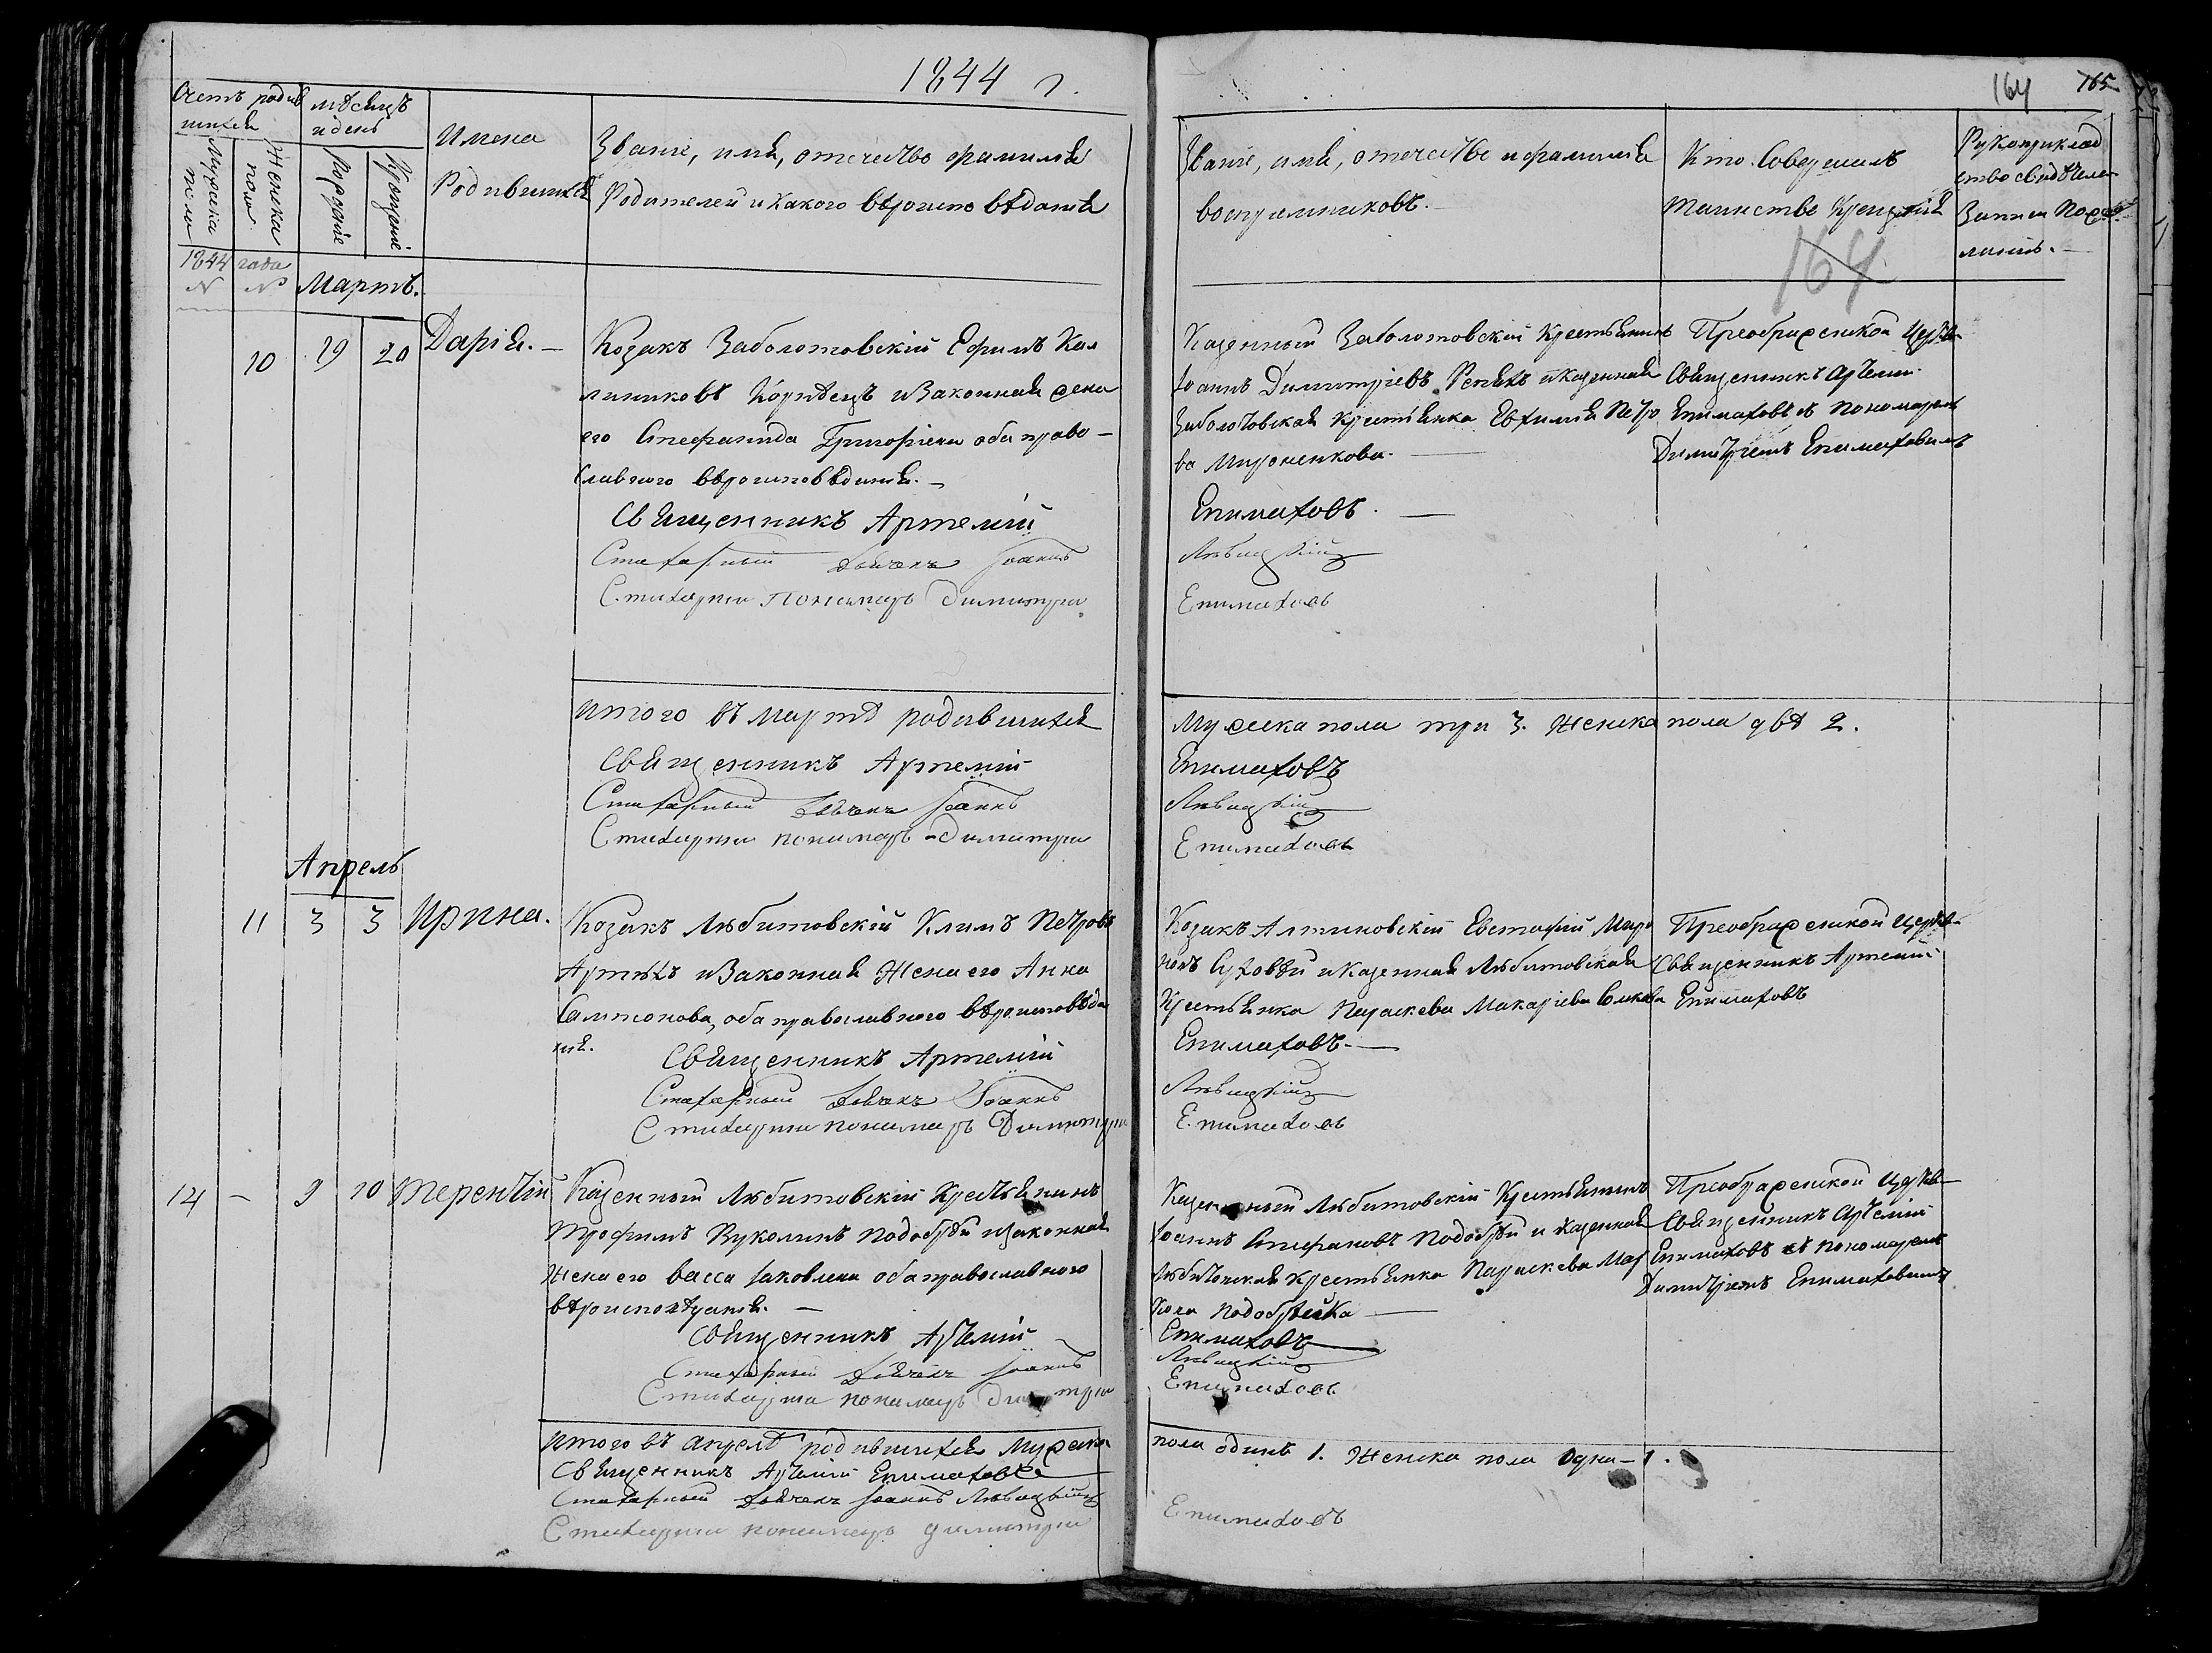 1844 г.
164 165
Счетъ родив
шихся
мѣсяцъ
и день
Мужска
пола
Женска
пола
Рожденіе
Крещеніе
Имена
Родившихся
Званіе, имя, отечество фамилія
Родителей и какого вѣроисповѣданія
Званіе, имя, отечество и фамилія
воспріемниковъ.
Кто Совершилъ
таинство Крещенія
Рукоприклад
ство свидѣтелей
Записи По желанію.
164
1844 года
N N
Мартъ.
10 19 20 Дарія.
Козакъ Заболотовскій Ефимъ Кал
линиковъ и Законная жена
его Стефанида Григоріева оба право-
славного вѣроисповѣданія.
Священникъ Артемій
Стихарный Дьячекъ Іоаннъ
Стихарни пономарь Димитри
Казенный Заболотовскій Крестьянинъ
Іоаннъ Димитріевъ Репѣхъ и Казенная
Заболотовская Крестьянка Евфимія Петро
ва Мироненкова.
Епимаховъ.
Лѣвицкій
Епимаховъ
Преображенской Церкви
Священникъ Артемій
Епимаховъ съ пономаремъ
Димитріемъ Епимаховимъ
Итого въ мартѣ родившихся
Мужска пола три 3. Женска пола двѣ 2.
Священникъ Артемій
Стихарный Дьячекъ Іоаннъ
Стихарни пономарь Димитри
Епимаховъ
Лѣвицкій
Епимаховъ
Апрель
11 3 3 Ирина.
Козакъ Любитовскій Климъ Петровъ
Артюхъ и Законная Жена его Анна
Самсонова, оба православного вѣроисповѣда
нія.
Священникъ Артемій
Стихарный Дьячекъ Іоаннъ
Стихарни пономарь Димитри
Козакъ Алтиновскій Евстафій Миро
новъ Суховѣй и Казенная Любитовская
Крестьянка Параскева Макаріева
Епимаховъ.
Лѣвицкій
Епимаховъ
Преображенской Церкви
Священникъ Артемій
Епимаховъ
14 - 9 10 Терентій
Казенный Любитовскій Крестьянинъ
Трофимъ Вуколинъ Подобѣй и законная
Жена его Васса Іаковлева оба православного
вѣроисповѣданія.
Священникъ Артемій
Стихарный Дьячекъ Іоаннъ
Стихарни пономарь Димитри
Казенный Любитовскій Крестьянинъ
Іоаннъ Стефановъ Подобѣй и Казенная
Любитовская Крестьянка Параскева Мар
кова
Епимаховъ
Лѣвицкій
Епимаховъ
Преображенской Церкви
Священникъ Артемій
Епимаховъ съ пономаремъ
Димитріемъ Епимаховимъ
Итого въ апрелѣ родившихся Мужска
пола одинъ 1. Женска пола Одна - 1.
Священникъ Артемій Епимаховъ
Стихарный Дьячекъ Іоаннъ Лѣвицкій
Стихарни пономарь димитри
Епимаховъ